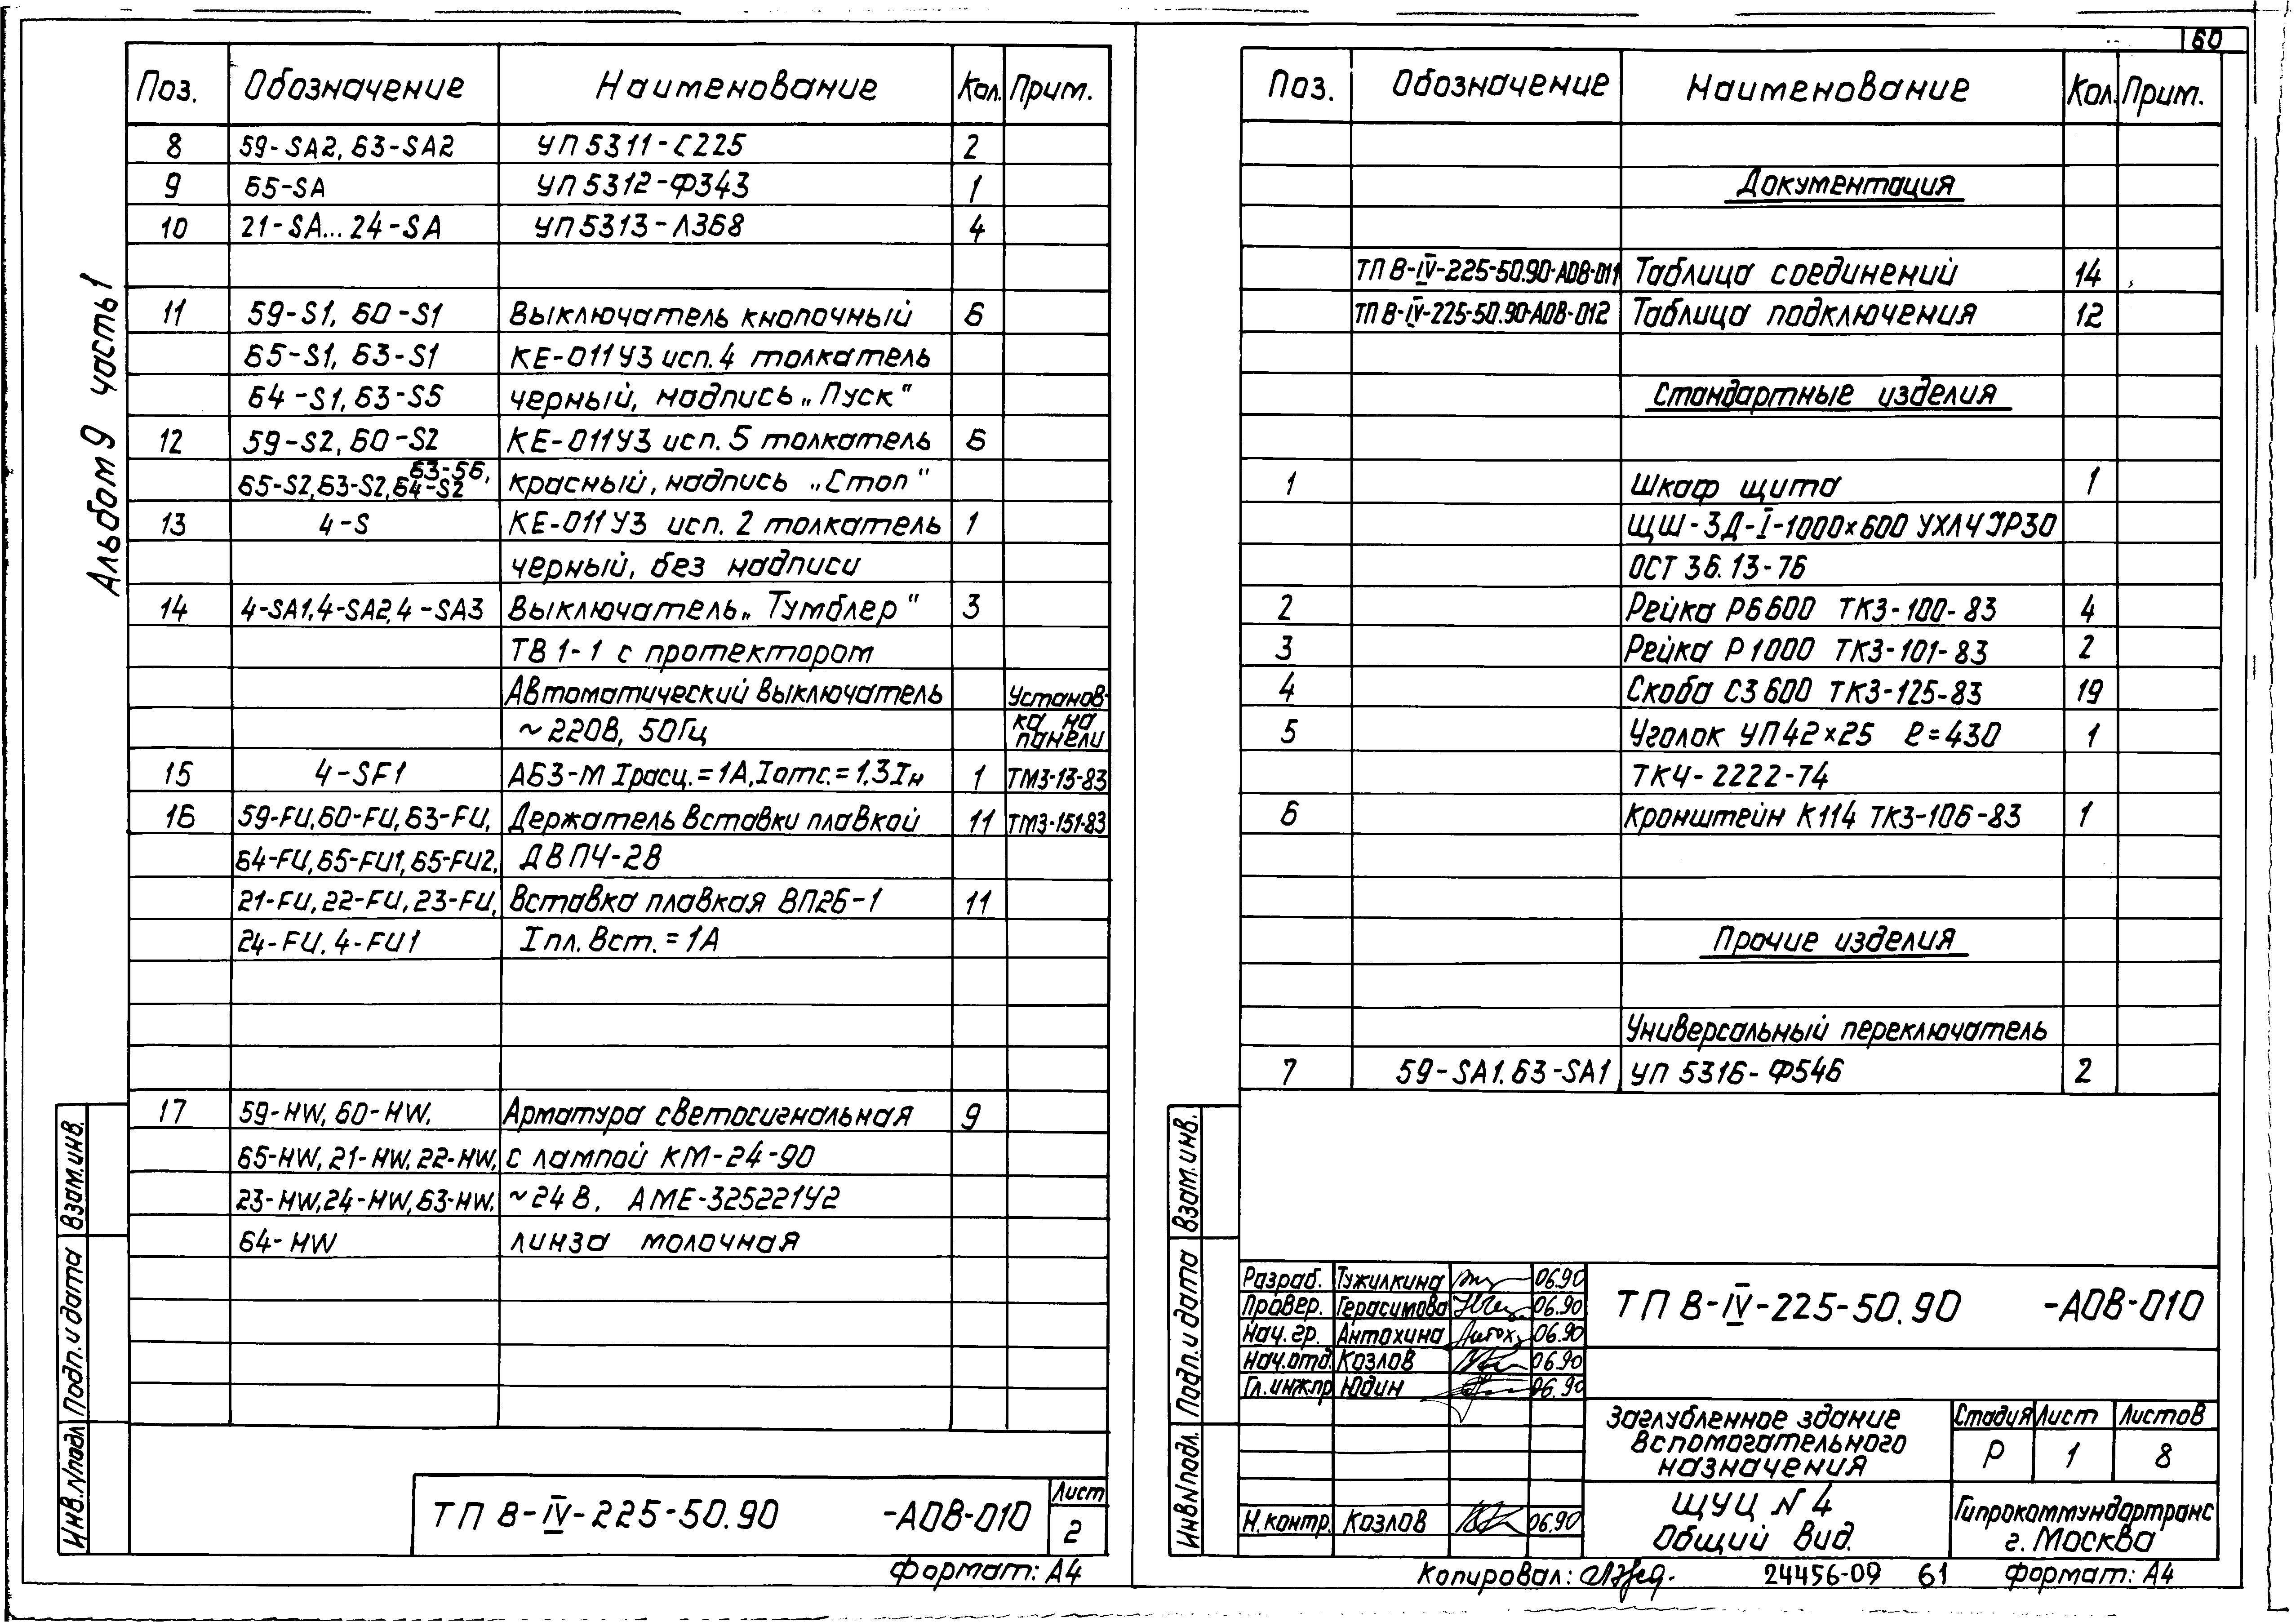 Альбом 9 часть 1
Поз. Обозначение Наименование Кол. Прим.
8 59-SA2, 63-SA2 УП 5311-С225 2
9 65-SA УП 5312-Ф343 1
10 21-SA... 24-SA УП 5313-Л368 4
11 59-S1, 60-S1 Выключатель кнопочный 6
65-S1, 63-S1 КЕ-011У3 исп. 4 толкатель
64-S1, 63-S5 черный, надпись „Пуск“
12 59-S2, 60-S2 КЕ-011У3 исп. 5 толкатель 6
63-S6,
65-S2, 63-S2, 64-S2 красный, надпись „Стоп“
13 4-S КЕ-011У3 исп. 2 толкатель 1
черный, без надписи
14 4-SA1, 4-SA2, 4-SA3 Выключатель „Тумблер“ 3
ТВ1-1 с протектором
Автоматический выключатель Установ-
~220В, 50Гц ка на
панели
15 4-SF1 АБ3-М Iрасц.=1А, Iотс.=1.3Iн 1 ТМ3-13-83
16 59-FU, 60-FU, 63-FU, Держатель вставки плавкой 11 ТМ3-151-83
64-FU, 65-FU1, 65-FU2, ДВП4-2В
21-FU, 22-FU, 23-FU, Вставка плавкая ВП2Б-1 11
24-FU, 4-FU1 Iпл. вст. = 1А
17 59-HW, 60-HW, Арматура светосигнальная 9
65-HW, 21-HW, 22-HW, с лампой КМ-24-90
23-HW, 24-HW, 63-HW, ~24В, АМЕ-325221У2
64-HW линза молочная
Взам. инв.
Подп. и дата
Инв. N подл.
ТП В-IV-225-50.90 -АОВ-010
Лист
2
Формат: А4
60
Поз. Обозначение Наименование Кол. Прим.
Документация
ТП В-IV-225-50.90-АОВ-011 Таблица соединений 14
ТП В-IV-225-50.90-АОВ-012 Таблица подключения 12
Стандартные изделия
1 Шкаф щита 1
ЩШ-ЗД-I-1000×600 УХЛ4 IР30
ОСТ 36.13-76
2 Рейка Р6600 ТК3-100-83 4
3 Рейка Р1000 ТК3-101-83 2
4 Скоба С3600 ТК3-125-83 19
5 Уголок УП42×25 ℓ=430 1
ТК4-2222-74
6 Кронштейн К114 ТК3-106-83 1
Прочие изделия
Универсальный переключатель
7 59-SA1. 63-SA1 УП 5316-Ф546 2
Взам. инв.
Подп. и дата
Инв N подл.
Разраб. Тужилкина 06.90
Провер. Герасимова 06.90
Нач. гр. Антохина 06.90
Нач. отд. Козлов 06.90
Гл. инж.пр Юдин 06.90
Н. контр. Козлов 06.90
ТП В-IV-225-50.90 -АОВ-010
Заглубленное здание
вспомогательного
назначения
Стадия Лист Листов
Р 1 8
ЩУЦ N 4
Общий вид.
Гипрокоммундортранс
г. Москва
Копировал: 24456-09 61 Формат: А4